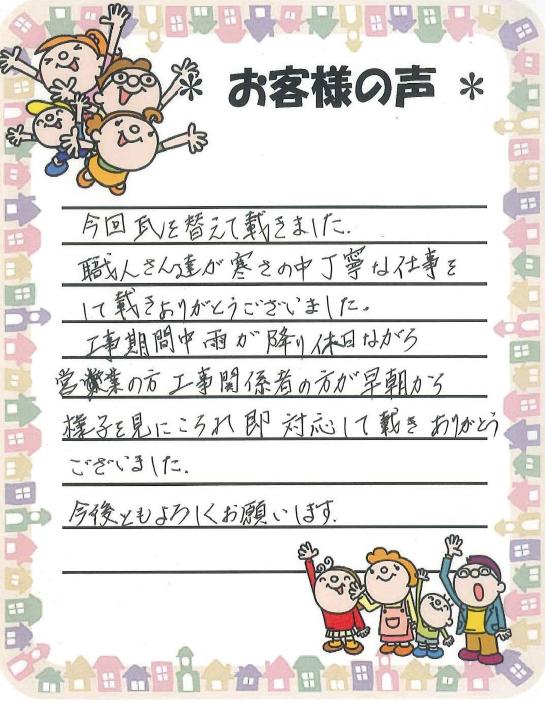 ＊ お客様の声 ＊
今回瓦を替えて載きました.
職人さん達が寒さの中丁寧な仕事を
して載きありがとうございました。
工事期間中雨が降り休日ながら
営業の方工事関係者の方が早朝から
様子を見にこられ即対応して載きありがとう
ございました.
今後ともよろしくお願いします.